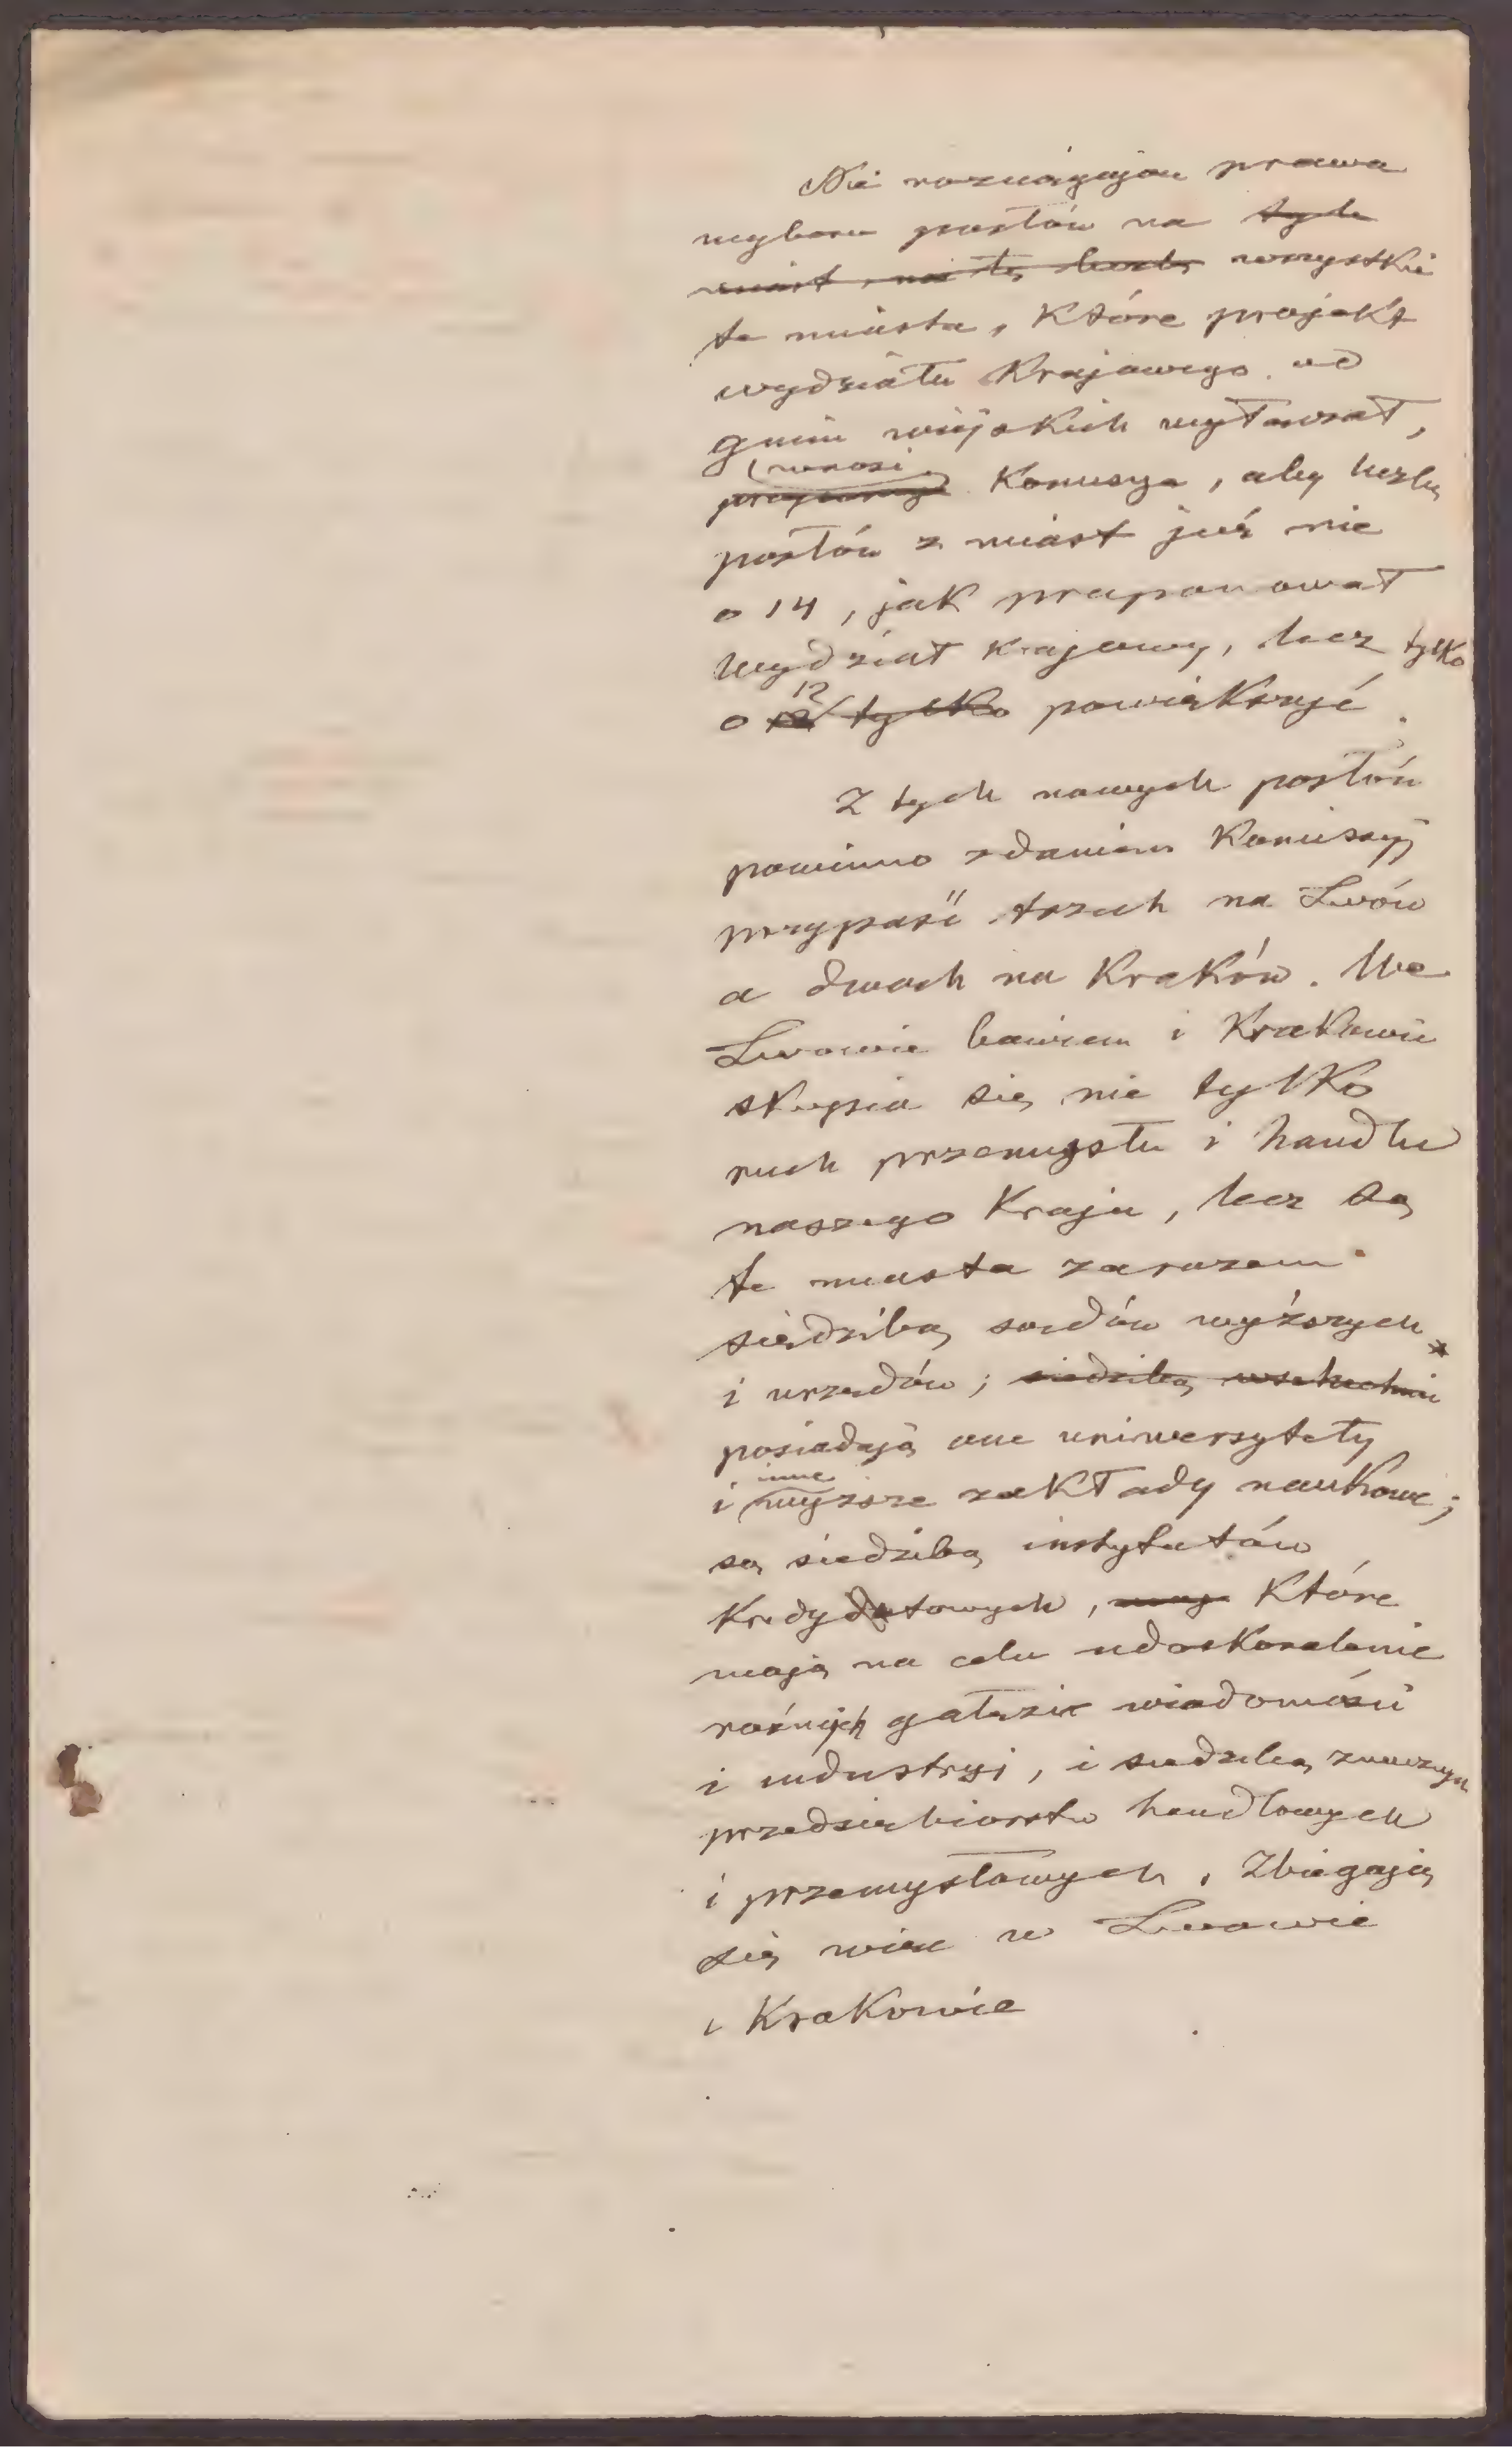 Nie rozciągając prawa
wyboru posłów na tyle
miast, na tę liczbę wszystkie
te miasta, które projekt
wydziału Krajowego od
gmin wiejskich wyłączał,
wnosi
proponuje Komisya, aby liczbę
posłów z miast już nie
o 14, jak proponował
Wydział krajowy, lecz tylko
12
o tylko powiększyć.
Z tych nowych posłów
powinno zdaniem Komissyj
przypaść trzech na Lwów
a dwóch na Kraków. We
Lwowie bowiem i Krakowie
skupia się nie tylko
ruch przemysłu i handlu
naszego Kraju, lecz są
te miasta zarazem
siedzibą sądów wyższych
i urzędów; siedzibą wszechnic
posiadają one uniwersytety
inne
i wyższe zakłady naukowe;
są siedzibą instytutów
Kredytowych, mają które
mają na celu udoskonalenie
różnych gałęzie wiadomości
i industryi, i siedzibą znacznych
przedsiębiorstw handlowych
i przemysłowych. Zbiegają
się więc w Lwowie
i Krakowie